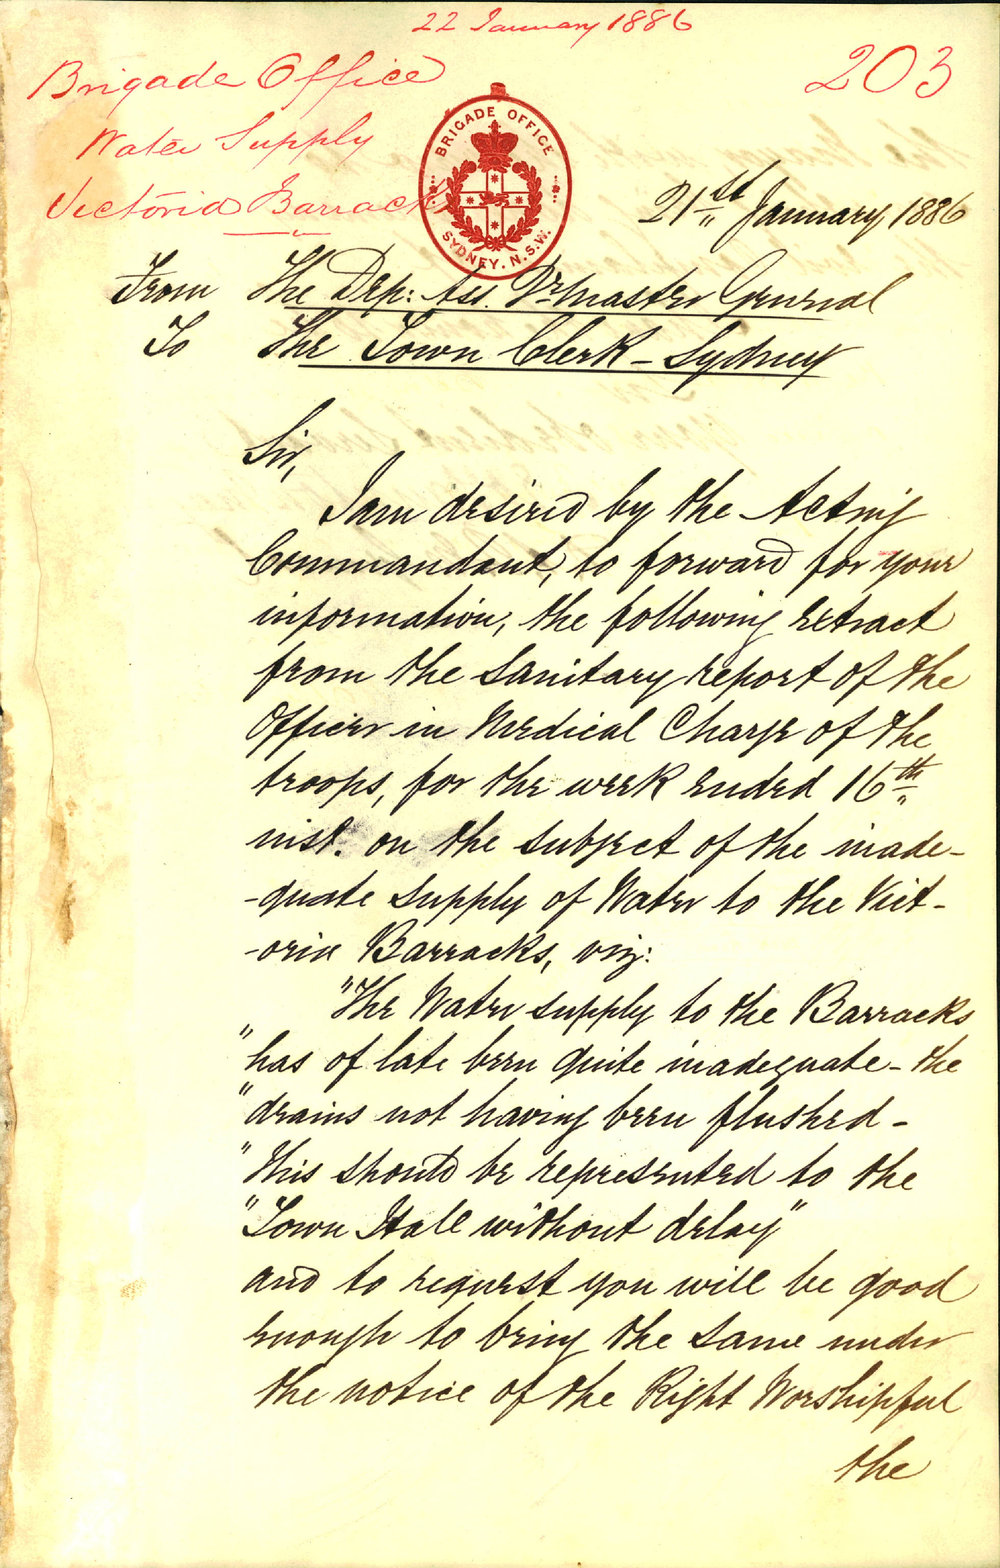 22 January 1886
203
Brigade Office
Water Supply
Victoria Barracks
BRIGADE OFFICE
SYDNEY. N.S.W.
21st January 1886
From The Dep: Ass. Qr. Master General
To The Town Clerk - Sydney
Sir,
I am desired by the Acting
Commandant, to forward for your
information, the following extract
from the Sanitary report of the
Officer in Medical Charge of the
troops, for the week ended 16th
inst. on the subject of the inade-
-quate supply of Water to the Vict-
-oria Barracks, viz:
"The Water supply to the Barracks
"has of late been quite inadequate - the
"drains not having been flushed -
"This should be represented to the
"Town Hall without delay"
and to request you will be good
enough to bring the same under
the notice of the Right Worshipful
the